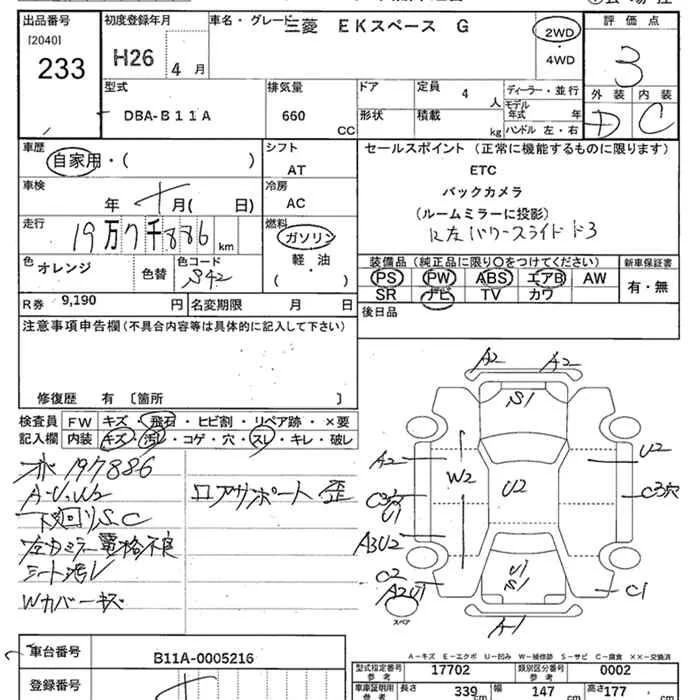 出品番号 初度登録年月 車名・グレード 三菱 EKスペース G 2WD ・ 4WD 評価点
[2040]
233 H26 4月 3
型式 排気量 ドア 定員 4人 ディーラー・並行 外装 内装
DBA-B11A 660 CC 形状 積載 kg モデル年式 年 D C
ハンドル 左・右
車歴 シフト セールスポイント (正常に機能するものに限ります)
自家用・( ) AT ETC
車検 冷房 バックカメラ
年 月( 日) AC (ルームミラーに投影)
走行 燃料 左パワースライドド3
19万7千886 km ガソリン
軽・油
( )
色 オレンジ 色替 色コード S42 装備品 (純正品に限り○をつけてください) 新車保証書
PS PW ABS エアB AW 有・無
R券 9,190 円 名変期限 月 日 SR ナビ TV カワ
注意事項申告欄 (不具合内容等は具体的に記入して下さい) 後日品
修復歴 有 〔箇所 〕
検査員 FW キズ・飛石・ヒビ割・リペア跡・×要
記入欄 内装 キズ・汚レ・コゲ・穴・スレ・キレ・破レ
197886
A・U、W2 ロアサポート 歪
下回りS、C
左カメラー電格不良
シート汚レ
Wカバーキズ
A2 A2
S1
A2 W2 U2 U2
C3穴 U1 C3穴
A3U2
C2 U1 S1 C1
A2U1
スペア
A1
A-キズ E-エクボ U-凹み W-補修跡 S-サビ C-腐食 ××-交換済
車台番号 B11A-0005216
登録番号
型式指定番号 参考 17702 類別区分番号 参考 0002
車庫証明用 参考 長さ 339 cm 幅 147 cm 高さ 177 cm